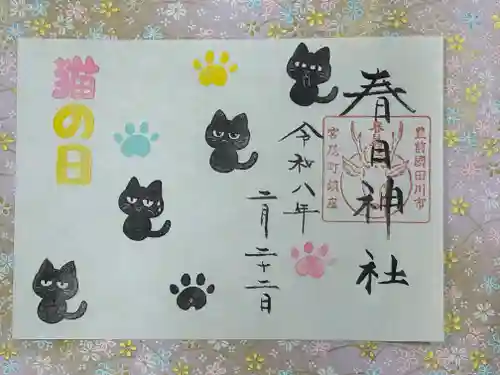 春日神社
豊前國田川市
春日
宮尾町鎮座
令和八年
二月二十二日
猫の日